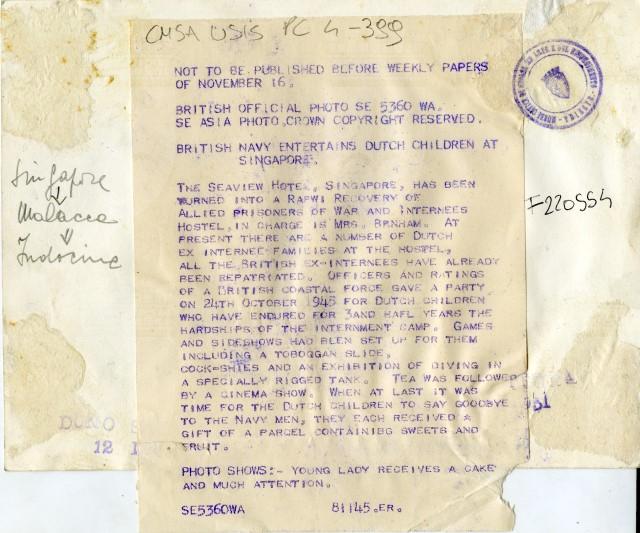 CMSA USIS PC 4-399
NOT TO BE PUBLISHED BEFORE WEEKLY PAPERS
OF NOVEMBER 16.
BRITISH OFFICIAL PHOTO SE 5360 WA.
SE ASIA PHOTO CROWN COPYRIGHT RESERVED.
BRITISH NAVY ENTERTAINS DUTCH CHILDREN AT
SINGAPORE.
THE SEAVIEW HOTEL, SINGAPORE, HAS BEEN
TURNED INTO A RAPWI RECOVERY OF
ALLIED PRISONERS OF WAR AND INTERNEES
HOSTEL, IN CHARGE IS MRS. BENHAM. AT
PRESENT THERE ARE A NUMBER OF DUTCH
EX INTERNEE FAMILIES AT THE HOSTEL,
ALL THE BRITISH EX-INTERNEES HAVE ALREADY
BEEN REPATRIATED. OFFICERS AND RATINGS
OF A BRITISH COASTAL FORCE GAVE A PARTY
ON 24TH OCTOBER 1945 FOR DUTCH CHILDREN
WHO HAVE ENDURED FOR 3AND HAFL YEARS THE
HARDSHIPS OF THE INTERNMENT CAMP. GAMES
AND SIDESHOWS HAD BEEN SET UP FOR THEM
INCLUDING A TOBOGGAN SLIDE,
COCK=SHIES AND AN EXHIBITION OF DIVING IN
A SPECIALLY RIGGED TANK. TEA WAS FOLLOWED
BY A CINEMA SHOW. WHEN AT LAST IT WAS
TIME FOR THE DUTCH CHILDREN TO SAY GOODBYE
TO THE NAVY MEN, THEY EACH RECEIVED A
GIFT OF A PARCEL CONTAINIBG SWEETS AND
FRUIT.
PHOTO SHOWS:- YOUNG LADY RECEIVES A CAKE
AND MUCH ATTENTION.
SE5360WA 81145.ER.
Singapore
Malacca
Indocina
F220554
12